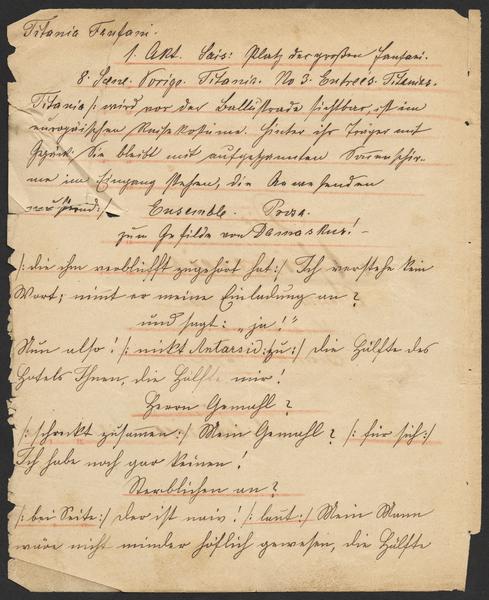 Titania Fanfani.
1. Akt. Sais: Platz der großen Fanfani.
8. Scene. Vorige. Titania. No 3. Entrée Titanias.
Titania /: wird vor der Ballustrade sichtbar, ist im
europäischen Reisekostüme. Hinter ihr Träger mit
Gepäck. Sie bleibt mit aufgespannten Sonnenschir-
me im Eingang stehen, die Anwesenden
musternd :/ Ensemble. Prosa.
zum Gefilde von Damaskus! –
/: die ihm verblüfft zugehört hat :/ Ich verstehe kein
Wort; nimt er meine Einladung an?
und sagt: „ja!"
Nun also! /: nickt Antarsid zu :/ die Hälfte des
Hotels Ihnen, die Hälfte mir!
Herrn Gemahl?
/: schrickt zusamen :/ Mein Gemahl? /: für sich :/
Ich habe noch gar keinen!
Sterblichen an?
/: bei Seite :/ der ist naiv! /: laut :/ Mein Mann
wäre nicht minder höflich gewesen, die Hälfte